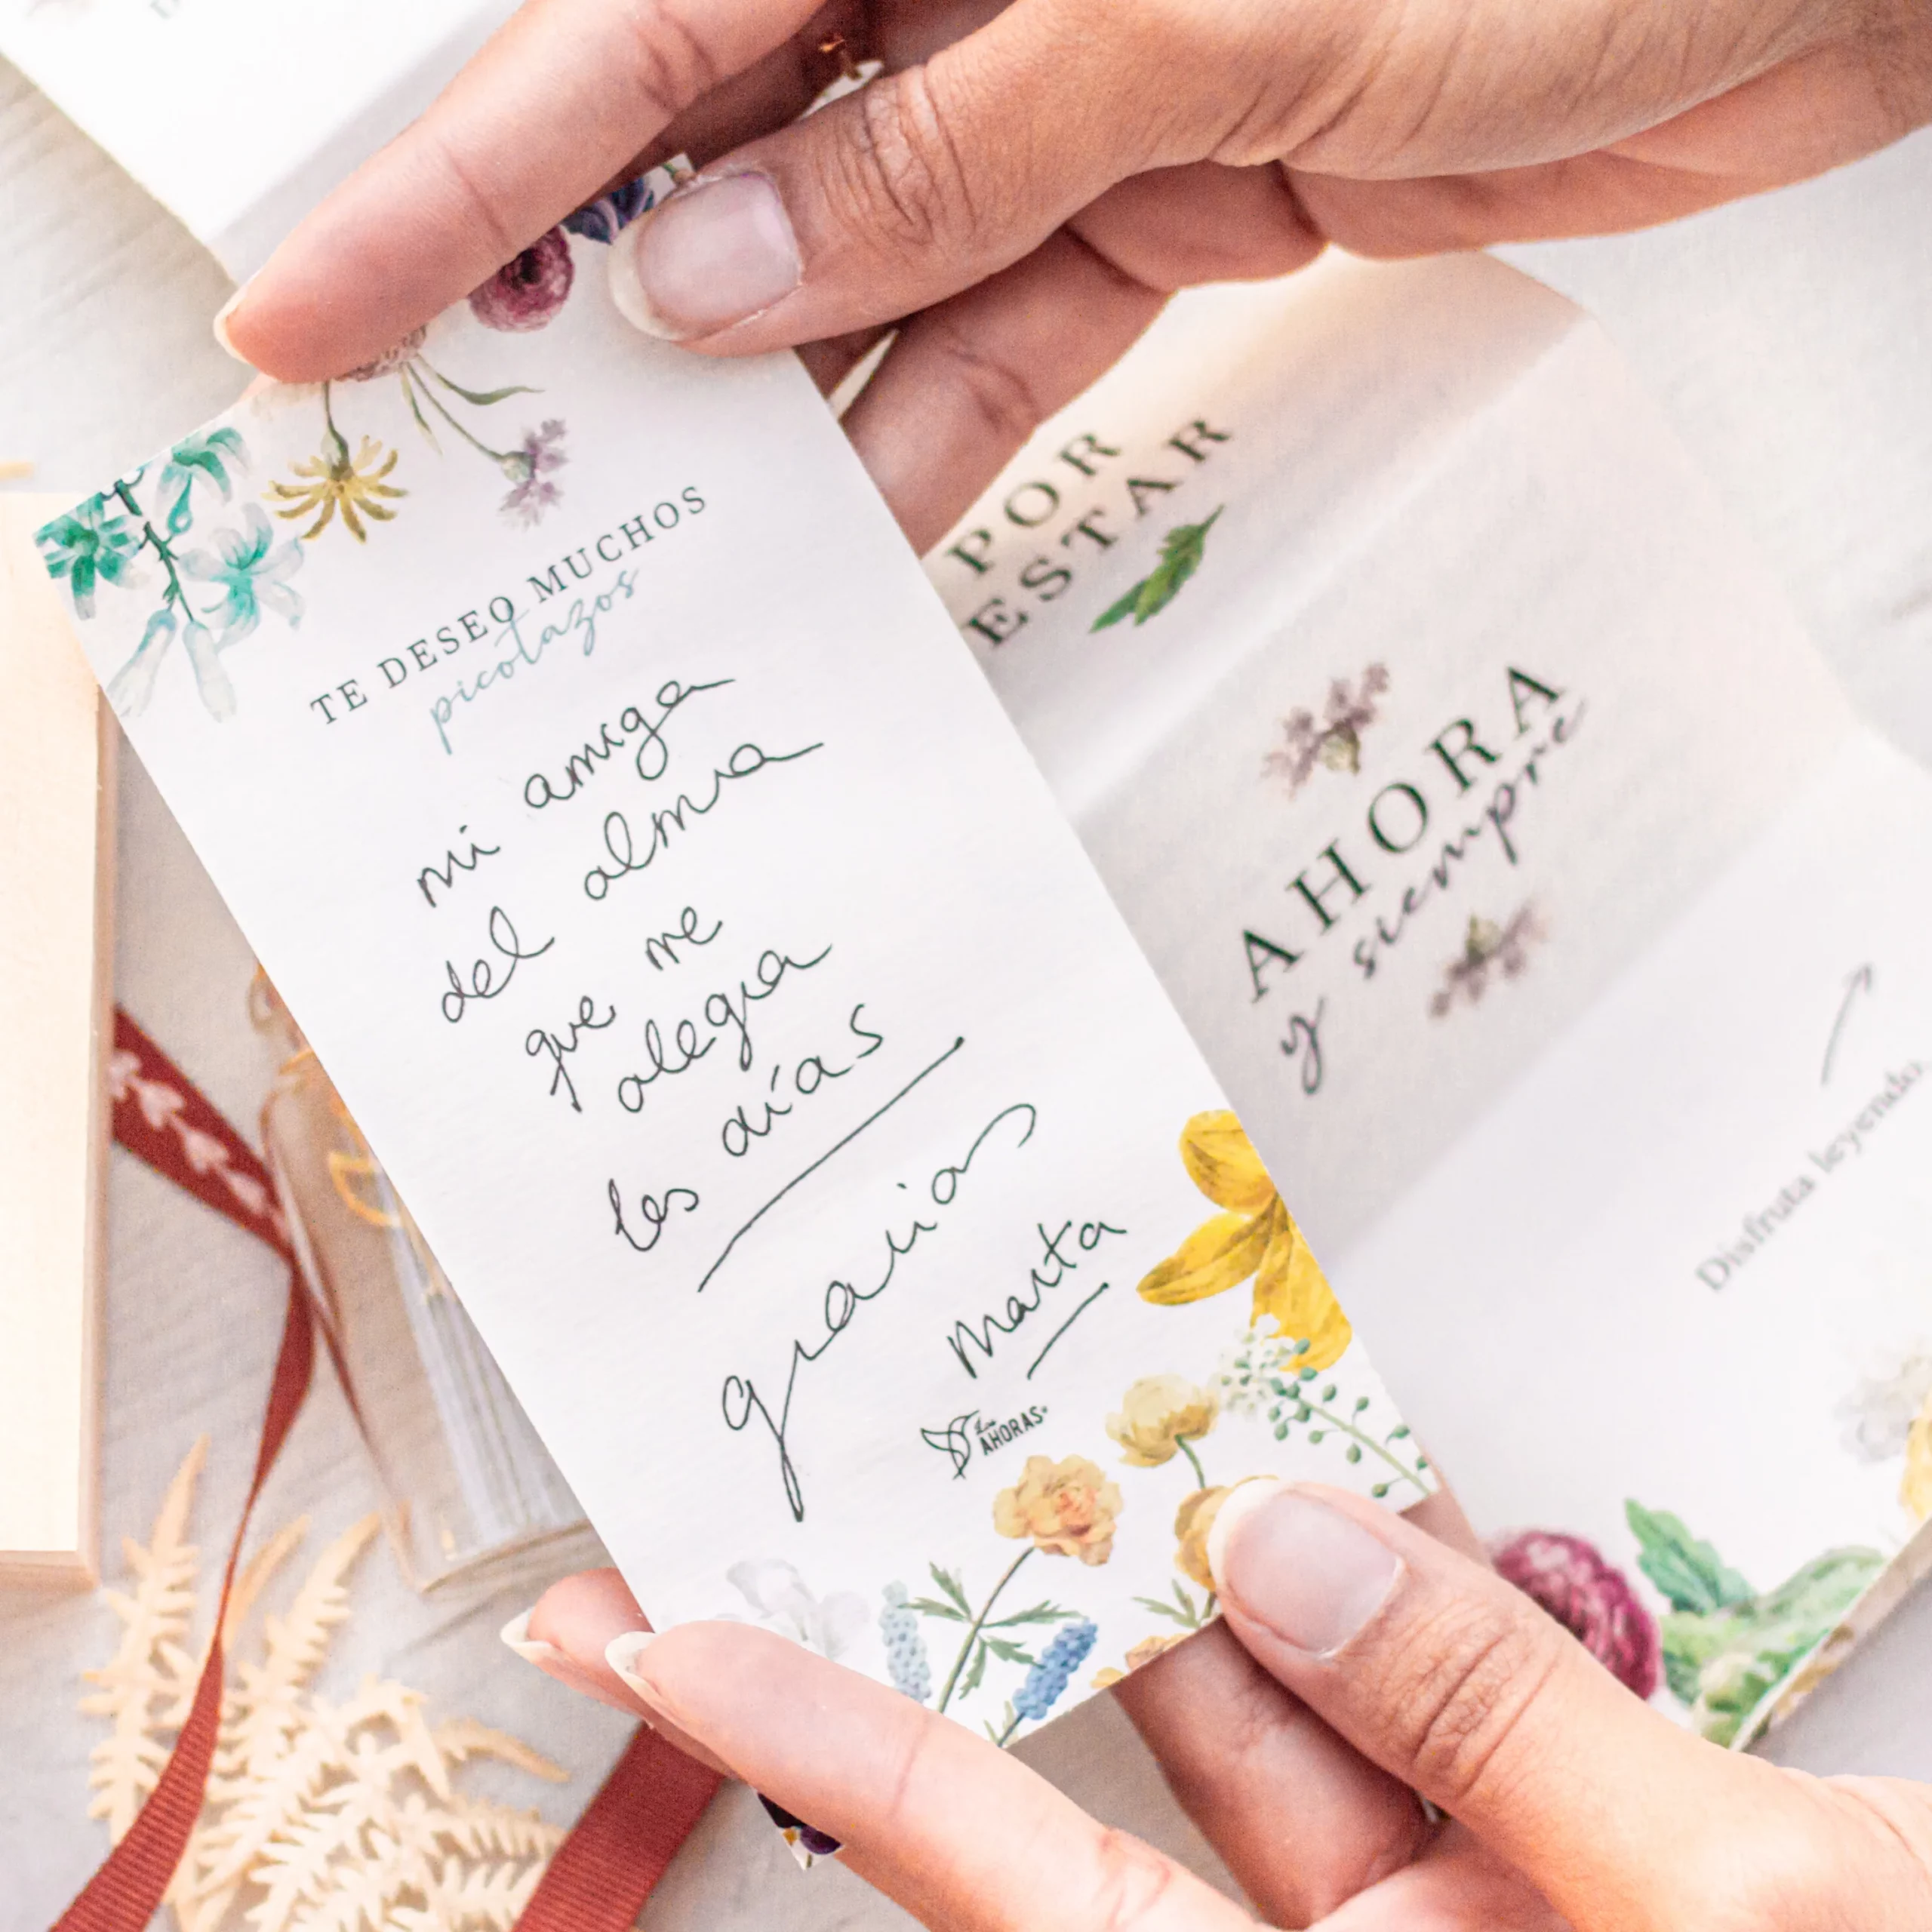 TE DESEO MUCHOS
picotazos
mi amiga
del alma
que me
alegra
los días
gracias
Marta
Los
AHORAS
POR
ESTAR
AHORA
y siempre
Disfruta leyendo